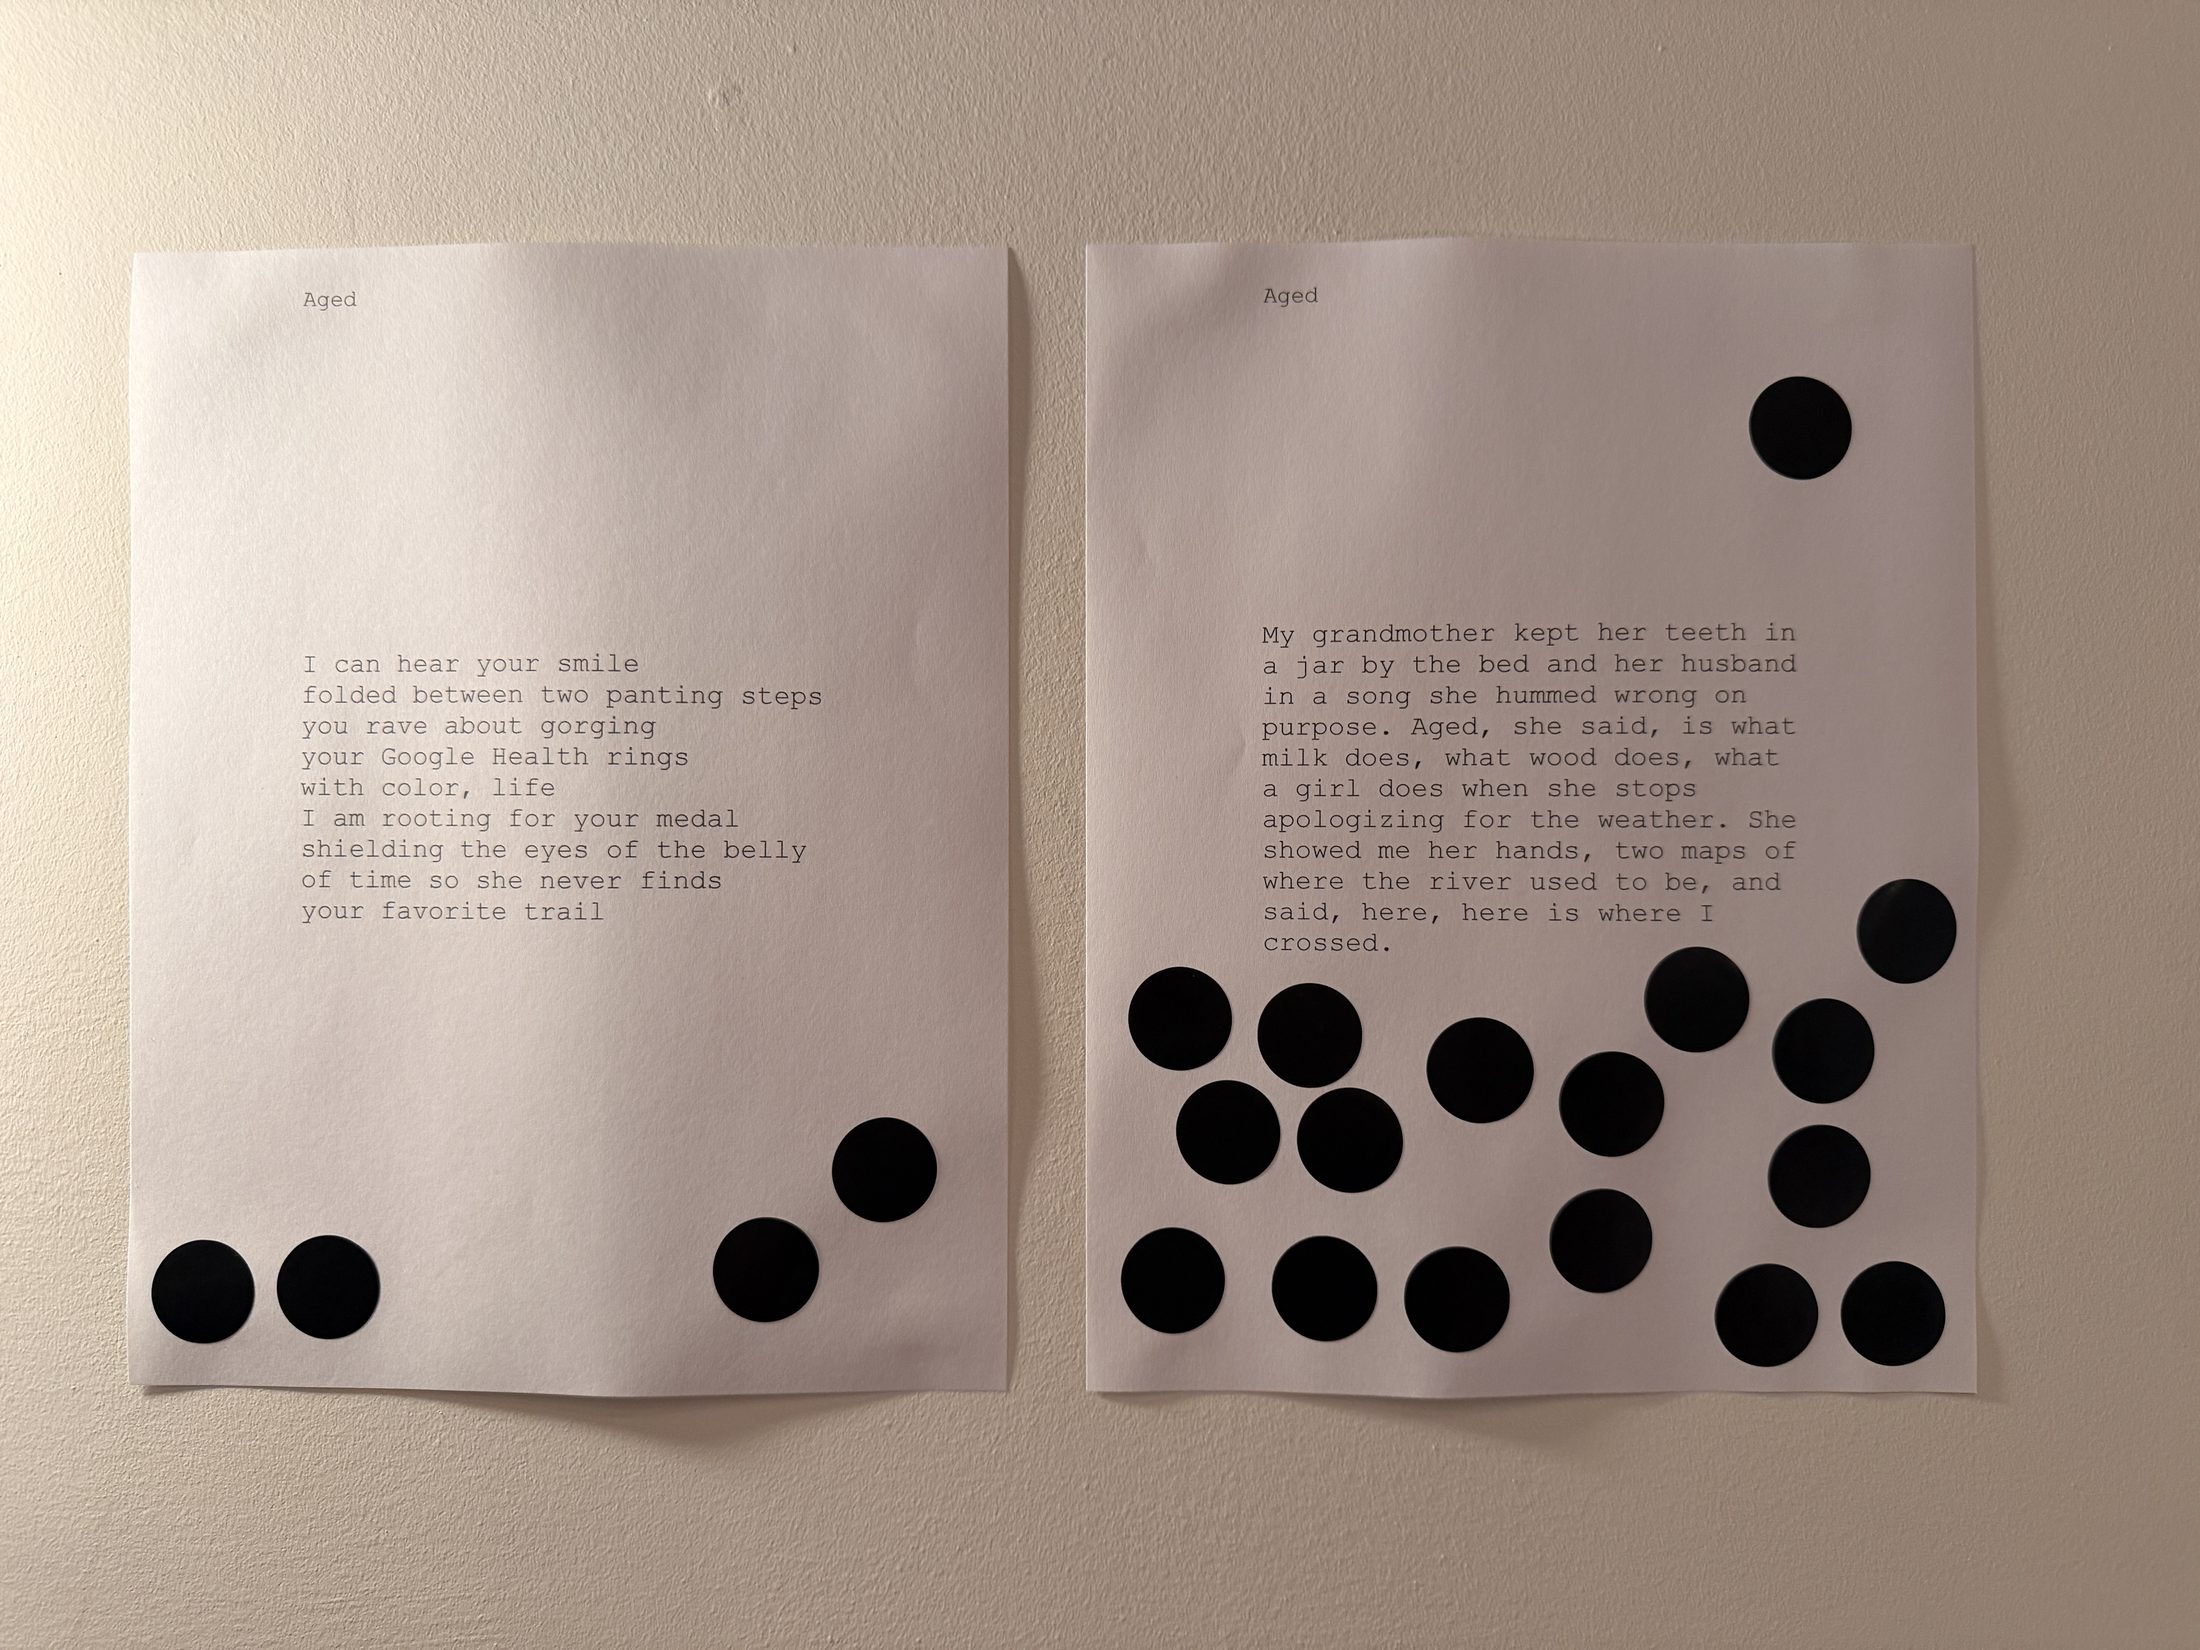 Aged
I can hear your smile
folded between two panting steps
you rave about gorging
your Google Health rings
with color, life
I am rooting for your medal
shielding the eyes of the belly
of time so she never finds
your favorite trail
Aged
My grandmother kept her teeth in
a jar by the bed and her husband
in a song she hummed wrong on
purpose. Aged, she said, is what
milk does, what wood does, what
a girl does when she stops
apologizing for the weather. She
showed me her hands, two maps of
where the river used to be, and
said, here, here is where I
crossed.